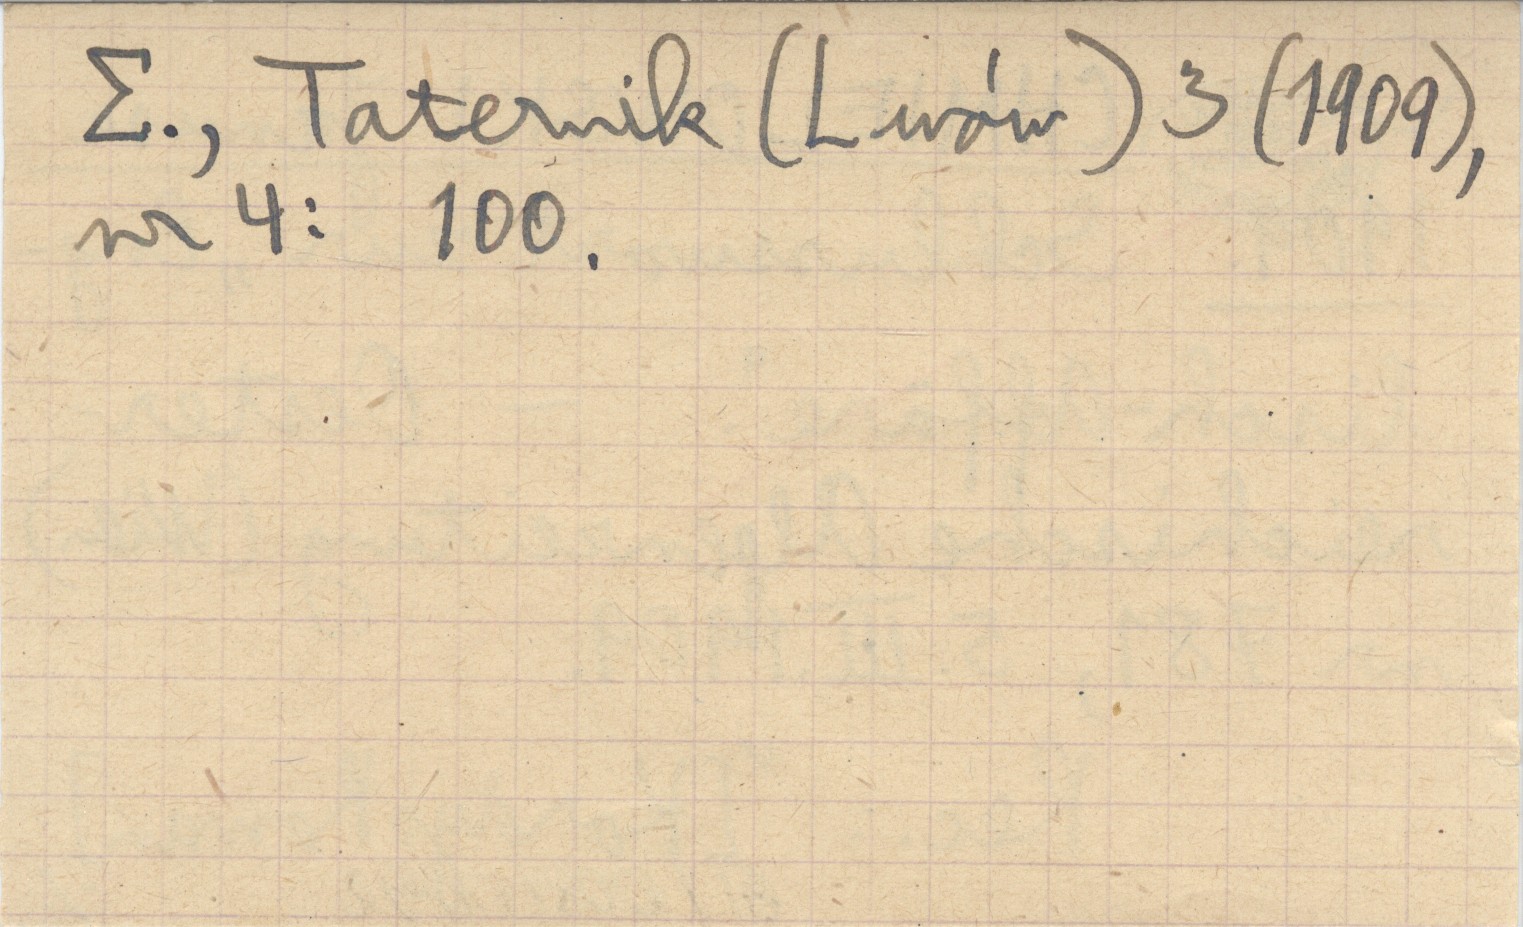 Σ., Taternik (Lwów) 3 (1909),
nr 4: 100.